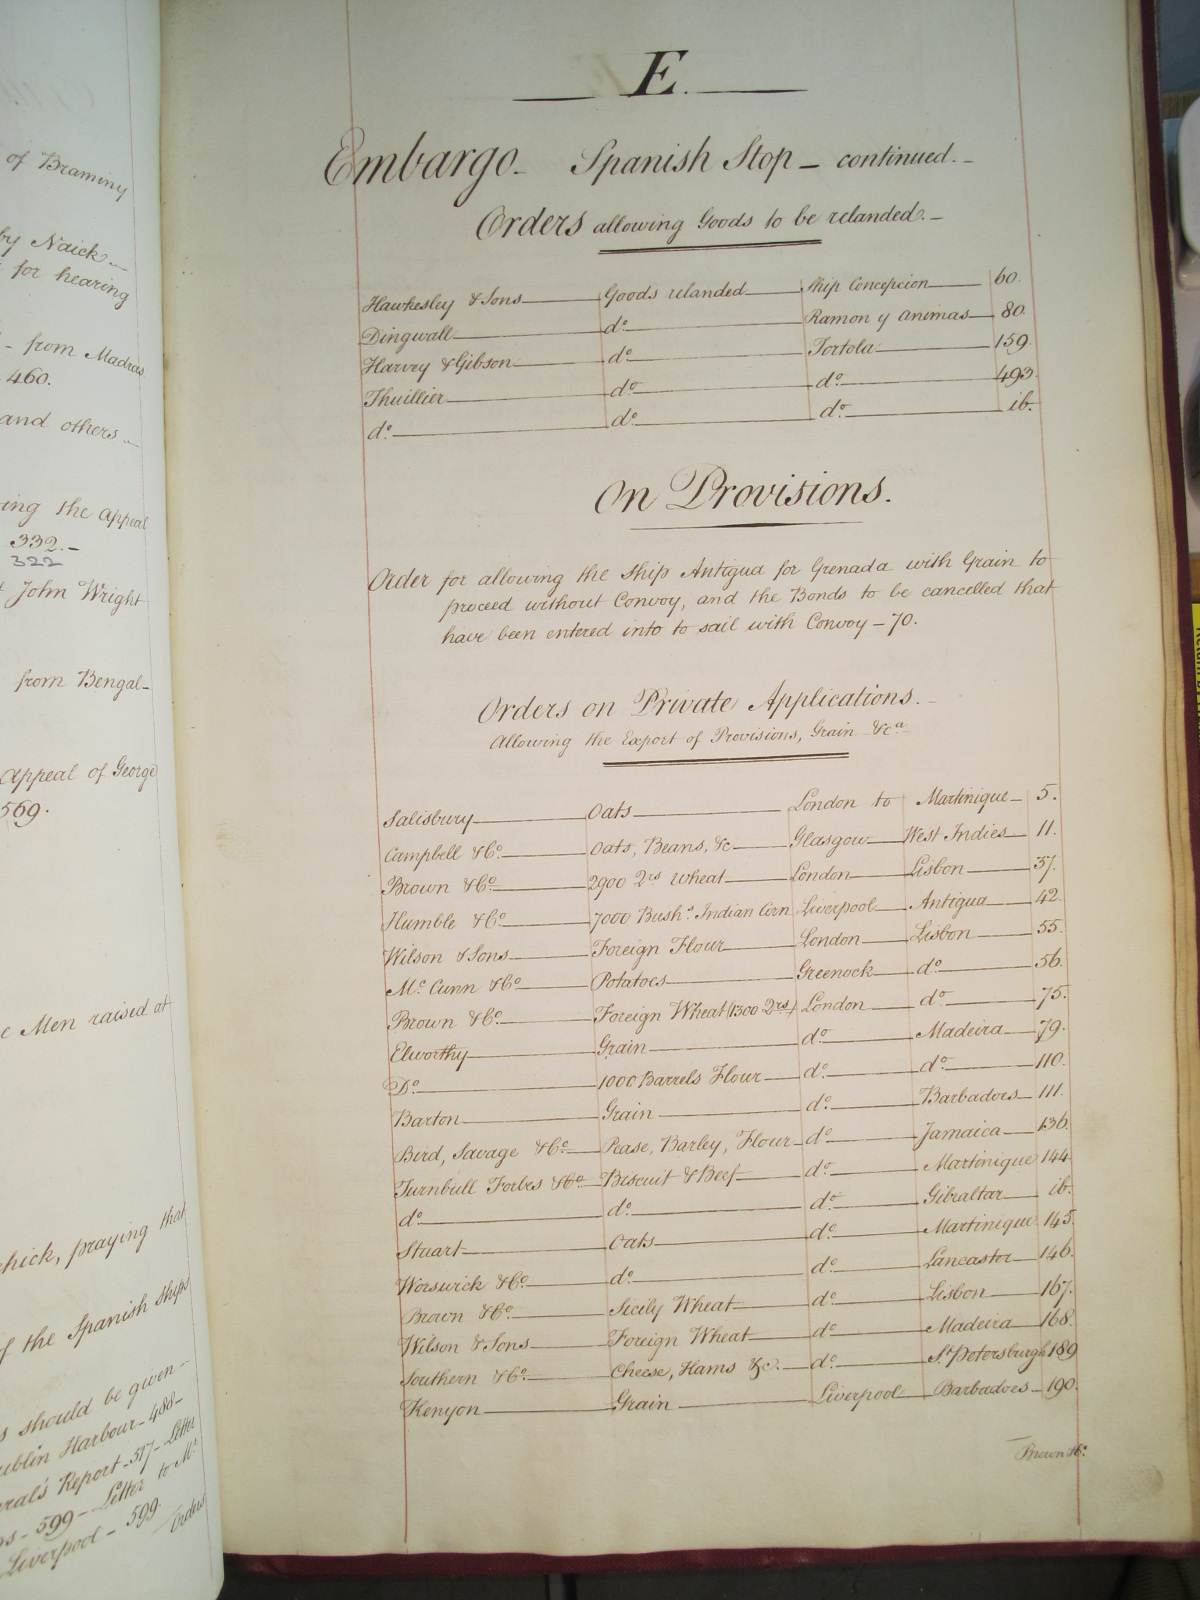 of Braminy
by Naick
for hearing
- from Madras
460.
and others
ing the appeal
332.-
322
John Wright
from Bengal-
Appeal of George
569.
Men raised at
hick, praying that
of the Spanish Ships
s should be given -
ublin Harbour - 488 -
rral's Report - 517 - Letter
- 599 - Letter to Mr
Liverpool - 599.
Orders
E.
Embargo - Spanish Stop - continued. -
Orders allowing Goods to be relanded. -
Hawkesley & Sons Goods relanded Ship Concepcion 60.
Dingwall do. Ramon y Animas 80.
Harvey & Gibson do. Tortola 159.
Thuillier do. do. 493.
do. do. do. ib.
On Provisions.
Order for allowing the Ship Antigua for Grenada with Grain to
proceed without Convoy, and the Bonds to be cancelled that
have been entered into to sail with Convoy - 70.
Orders on Private Applications. -
Allowing the Export of Provisions, Grain &ca
Salisbury Oats London to Martinique 5.
Campbell & Co. Oats, Beans, &c Glasgow West Indies 11.
Brown & Co. 2900 Qrs Wheat London Lisbon 37.
Humble & Co. 7000 Bushs. Indian Corn Liverpool Antigua 42.
Wilson & Sons Foreign Flour London Lisbon 55.
Mc. Cunn & Co. Potatoes Greenock do. 56.
Brown & Co. Foreign Wheat (1300 Qrs) London do. 75.
Elworthy Grain do. Madeira 79.
Do. 1000 Barrels Flour do. do. 110.
Barton Grain do. Barbadoes 111.
Bird, Savage & Co. Pease, Barley, Flour do. Jamaica 136.
Turnbull Forbes & Co. Biscuit & Beef do. Martinique 144
do. do. do. Gibraltar ib.
Stuart Oats do. Martinique 145.
Worswick & Co. do. do. Lancaster 146.
Brown & Co. Sicily Wheat do. Lisbon 167.
Wilson & Sons Foreign Wheat do. Madeira 168.
Southern & Co. Cheese, Hams &c. do. St. Petersburgh 189
Kenyon Grain Liverpool Barbadoes 190.
Brown & Co.